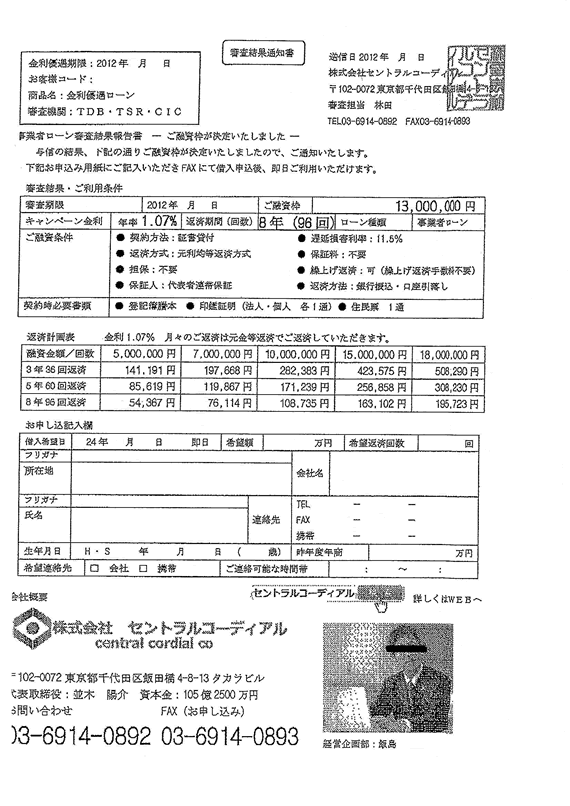 審査結果通知書
金利優遇期限：2012年　月　日
お客様コード：
商品名：金利優遇ローン
審査機関：TDB・TSR・CIC
送信日2012年　月　日
株式会社セントラルコーディアル
〒102-0072 東京都千代田区飯田橋4-8-13
審査担当　林田
TEL03-6914-0892　FAX03-6914-0893
事業者ローン審査結果報告書　ー　ご融資枠が決定いたしました　ー
与信の結果、下記の通りご融資枠が決定いたしましたので、ご通知いたします。
下記お申込み用紙にご記入いただきFAXにて借入申込後、即日ご利用いただけます。
審査結果・ご利用条件
審査期限　2012年　月　日　ご融資枠　13,000,000円
キャンペーン金利　年率1.07%　返済期間（回数）　8年（96回）　ローン種類　事業者ローン
ご融資条件　● 契約方法：証書貸付　● 遅延損害利率：11.5%
● 返済方式：元利均等返済方式　● 保証料：不要
● 担保：不要　● 繰上げ返済：可（繰上げ返済手数料不要）
● 保証人：代表者連帯保証　● 返済方法：銀行振込・口座引落し
契約時必要書類　● 登記簿謄本　● 印鑑証明（法人・個人　各1通）　● 住民票　1通
返済計画表　金利1.07%　月々のご返済は元金等返済でご返済していただきます。
融資金額／回数　5,000,000円　7,000,000円　10,000,000円　15,000,000円　18,000,000円
3年36回返済　141,191円　197,668円　282,383円　423,575円　508,290円
5年60回返済　85,619円　119,867円　171,239円　256,858円　308,230円
8年96回返済　54,367円　76,114円　108,735円　163,102円　195,723円
お申し込み記入欄
借入希望日　24年　月　日　即日　希望額　万円　希望返済回数　回
フリガナ
所在地　会社名
フリガナ
氏名　連絡先
TEL　ー　ー
FAX　ー　ー
携帯　ー　ー
生年月日　H・S　年　月　日　（　歳）　昨年度年商　万円
希望連絡先　□ 会社　□ 携帯　ご連絡可能な時間帯　：　〜　：
会社概要
セントラルコーディアル　詳しくはWEBへ
株式会社　セントラルコーディアル
central cordial co
〒102-0072 東京都千代田区飯田橋4-8-13 タカラビル
代表取締役：並木　陽介　資本金：105億2500万円
お問い合わせ　FAX（お申し込み）
03-6914-0892 03-6914-0893
経営企画部：飯島